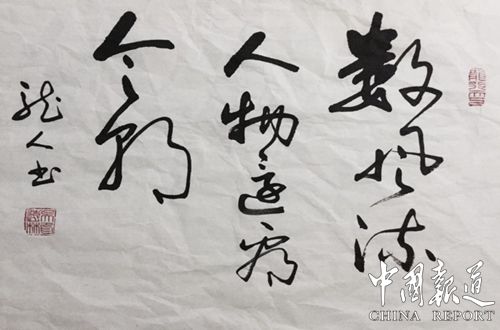 数风流
人物還看
今朝
龙人书
中國報道
CHINA REPORT